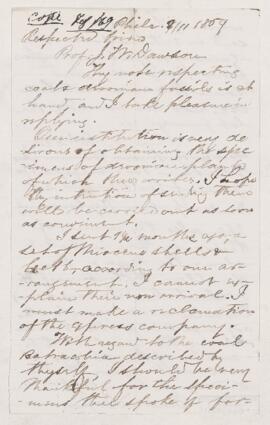 Copy Phila. 9/11 1869
Respected friend
Prof. J. W. Dawson
Thy note respecting
coal & devonian fossils is at
hand, and I take pleasure in
replying.
Our institution is very de
sirous of obtaining the spec
imens of devonian plants
of which thee writes. I hope
thy intention of sending them
will be carried out as soon
as convenient.
I sent 1½ months ago, a
set of miocene shells &
according to our ar-
rangement. I cannot ex-
plain their non arrival. I
must make a reclamation
of the express company.
With regard to the coal
batrachia described by
thyself I should be very
thankful for the speci-
mens thee spoke of for-